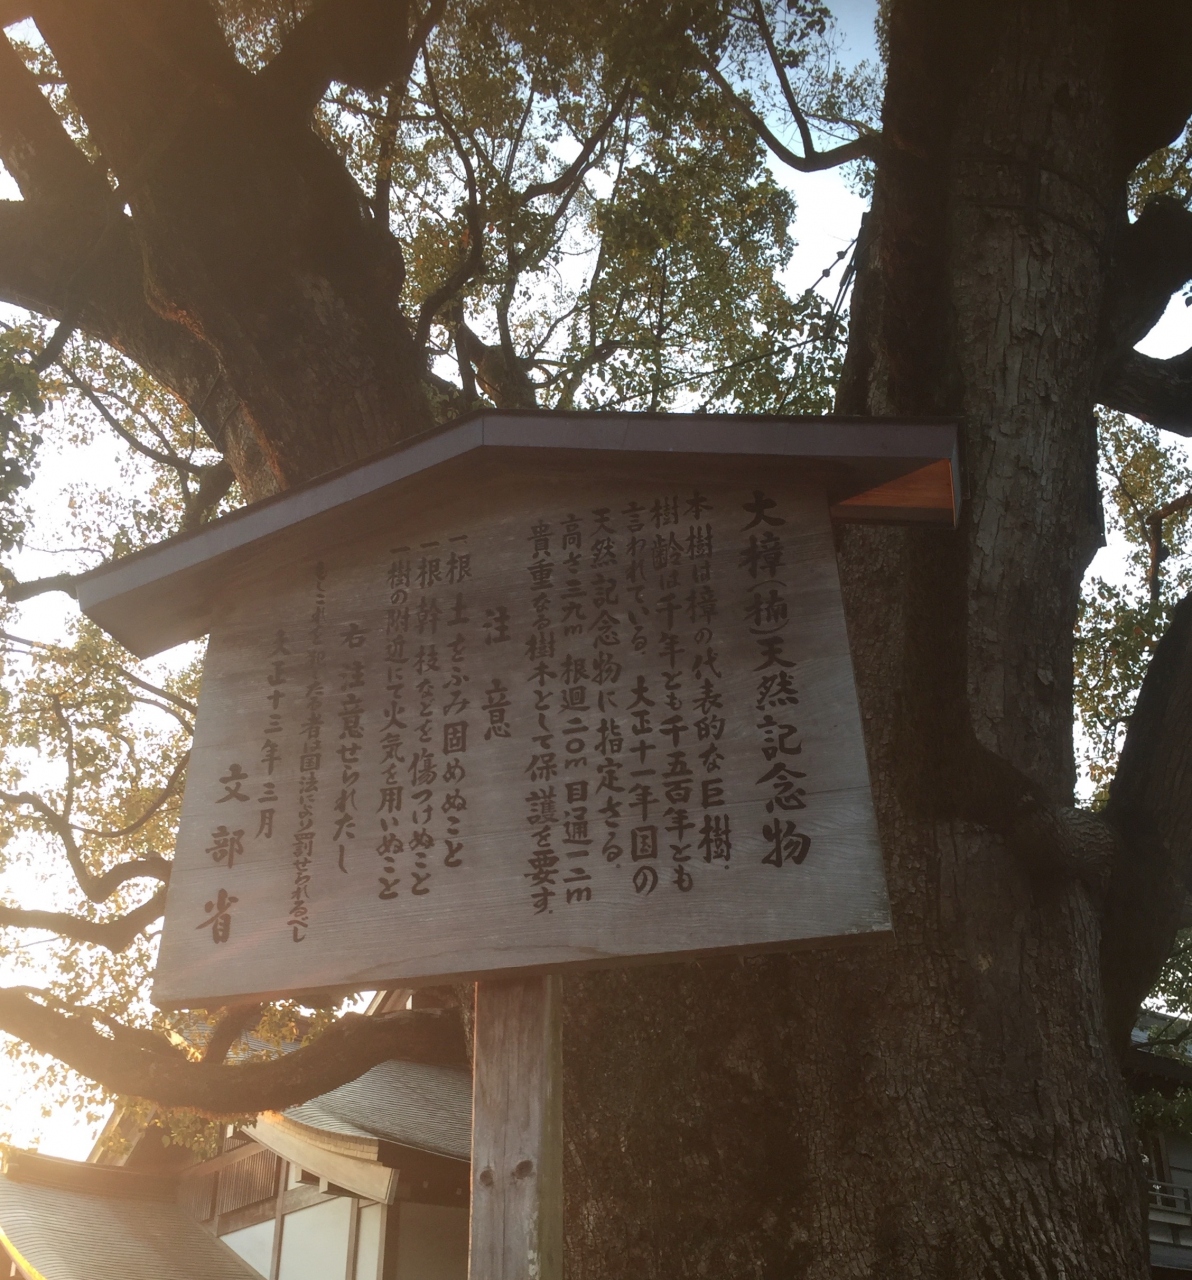 大樟（楠）天然記念物
本樹は樟の代表的な巨樹.
樹齢は千年とも千五百年とも
言われている. 大正十一年国の
天然記念物に指定さる.
高さ三九m 根廻二〇m 目通一二m
貴重なる樹木として保護を要す.
注意
一根土をふみ固めぬこと
一根幹枝などを傷つけぬこと
一樹の附近にて火気を用いぬこと
右注意せられたし
もしこれを犯した者は国法により罰せられるべし
大正十三年三月
文部省